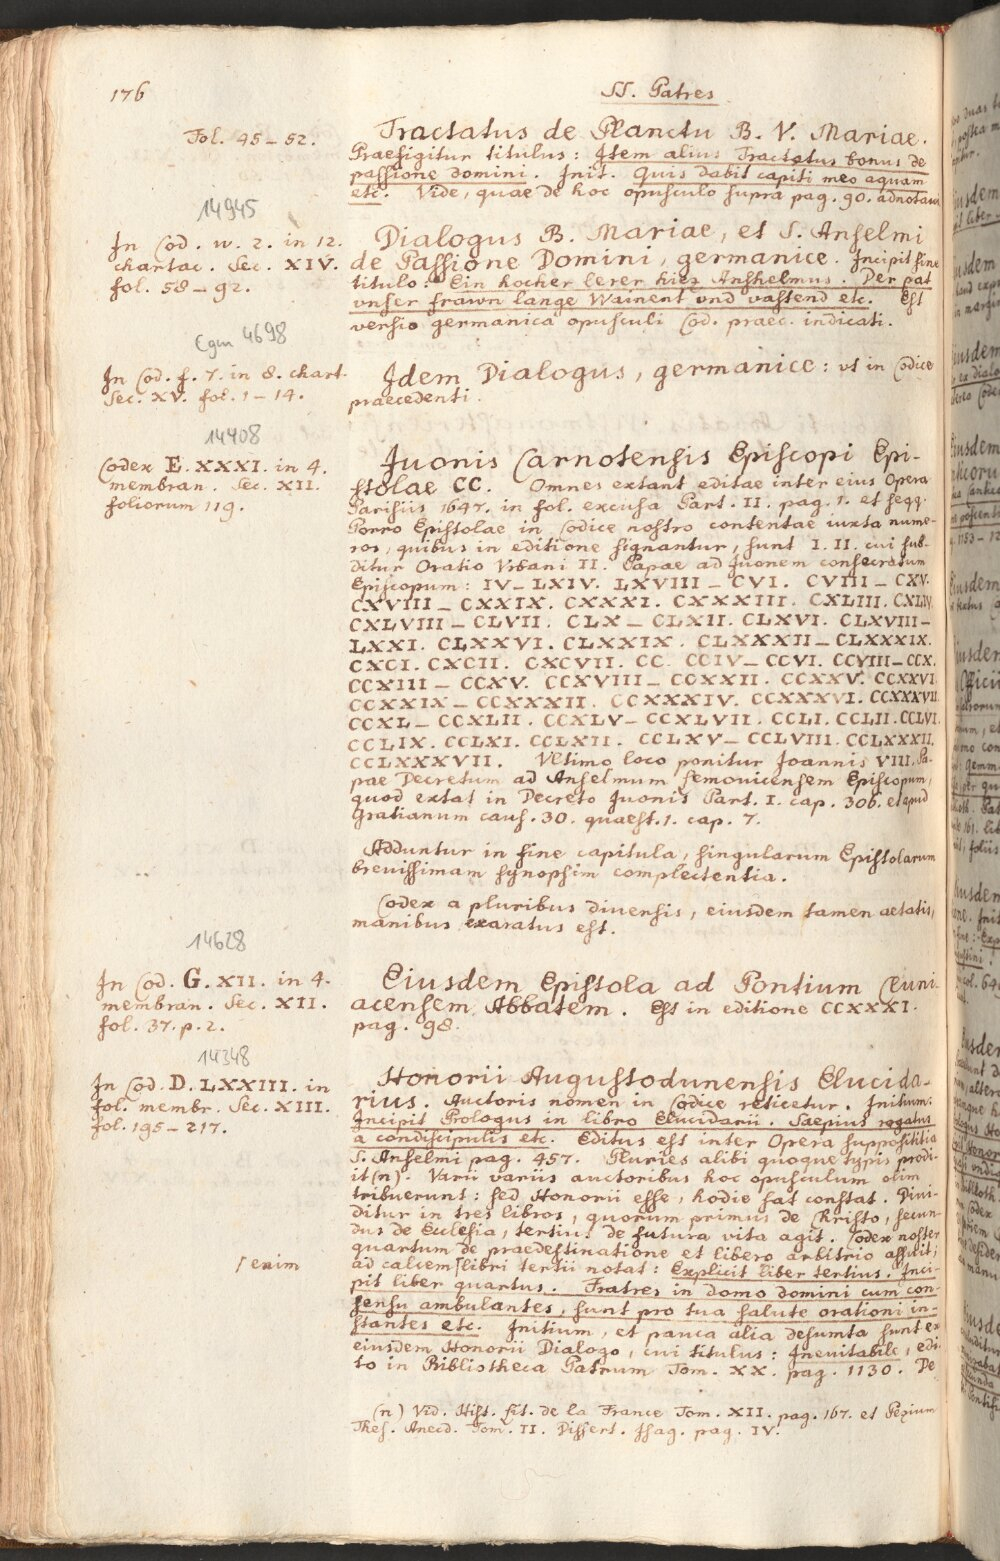 176
SS. Patres
Fol. 45-52.
Tractatus de Planctu B. V. Mariae.
Praefigitur titulus: Item alius Tractatus bonus de
passione domini. Init. Quis dabit capiti meo aquam
etc. Vide, quae de hoc opusculo supra pag. 90. adnotavi
14945
In Cod. w. 2. in 12.
chartac. Sec. XIV.
fol. 58-92.
Dialogus B. Mariae, et S. Anselmi
de Passione Domini, germanice. Incipit sine
titulo: Ein hocher lerer hiez Anshelmus. Der pat
vnser frawn lange Wainent vnd vastend etc. Est
versio germanica opusculi Cod. praec. indicati.
Cgm 4698
In Cod. f. 7. in 8. chart.
Sec. XV. fol. 1-14.
Idem Dialogus, germanice: vt in Codice
praecedenti.
14408
Codex E. XXXI. in 4.
membran. Sec. XII.
foliorum 119.
Iuonis Carnotensis Episcopi Epi-
stolae CC. Omnes extant editae inter eius Opera
Parisiis 1647. in fol. excusa Part. II. pag. 1. et seqq.
Porro Epistolae in Codice nostro contentae iuxta nume-
ros, quibus in editione signantur, sunt I. II. cui sub-
ditur Oratio Vrbani II. Papae ad Iuonem consecratum
Episcopum: IV-LXIV. LXVIII-CVI. CVIII-CXV.
CXVIII-CXXIX. CXXXI. CXXXIII. CXLIII. CXLIV.
CXLVIII-CLVII. CLX-CLXII. CLXVI. CLXVIII-
LXXI. CLXXVI. CLXXIX. CLXXXII-CLXXXIX.
CXCI. CXCII. CXCVII. CC. CCIV-CCVI. CCVIII-CCX.
CCXIII-CCXV. CCXVIII-CCXXII. CCXXV. CCXXVI.
CCXXIX-CCXXXII. CCXXXIV. CCXXXVI. CCXXXVII.
CCXL-CCXLII. CCXLV-CCXLVII. CCLI. CCLII. CCLVI.
CCLIX. CCLXI. CCLXII. CCLXV-CCLVIII. CCLXXXII.
CCLXXXVII. Vltimo loco ponitur Joannis VIII. Pa-
pae Decretum ad Anselmum Lemouicensem Episcopum,
quod extat in Decreto Iuonis Part. I. cap. 306. et apud
Gratianum caus. 30. quaest. 1. cap. 7.
Adduntur in fine capitula, singularum Epistolarum
breuissimam synopsim complectentia.
Codex a pluribus diuersis, eiusdem tamen aetatis,
manibus exaratus est.
14628
In Cod. G. XII. in 4.
membran. Sec. XII.
fol. 37. p. 2.
Eiusdem Epistola ad Pontium Cluni-
acensem Abbatem. Est in editione CCXXXI.
pag. 98.
14348
In Cod. D. LXXIII. in
fol. membr. Sec. XIII.
fol. 195-217.
Honorii Augustodunensis Elucida-
rius. Auctoris nomen in Codice reticetur. Initium:
Incipit Prologus in libro Elucidarii. Saepius rogatus
a condiscipulis etc. Editus est inter Opera supposititia
S. Anselmi pag. 457. Pluries alibi quoque typis prodi-
it (n). Varii variis auctoribus hoc opusculum olim
tribuerunt: sed Honorii esse, hodie sat constat. Diui-
ditur in tres libros, quorum primus de Christo, secun-
dus de Ecclesia, tertius de futura vita agit. Codex noster
quartum de praedestinatione et libero arbitrio assuit;
ad calcem⌈libri tertii notat: Explicit liber tertius. Inci-
⌈enim
pit liber quartus. Fratres in domo domini cum con-
sensu ambulantes, sunt pro tua salute orationi in-
stantes etc. Initium, et pauca alia desumta sunt ex
eiusdem Honorii Dialogo, cui titulus: Ineuitabile, edi-
to in Bibliotheca Patrum Tom. XX. pag. 1130. De
(n) Vid. Hist. Lit. de la France Tom. XII. pag. 167. et Pezium
Thes. Anecd. Tom. II. Dissert. Isag. pag. IV.